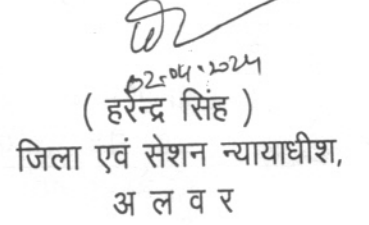 02-04-2024
( हरेन्द्र सिंह )
जिला एवं सेशन न्यायाधीश,
अ ल व र